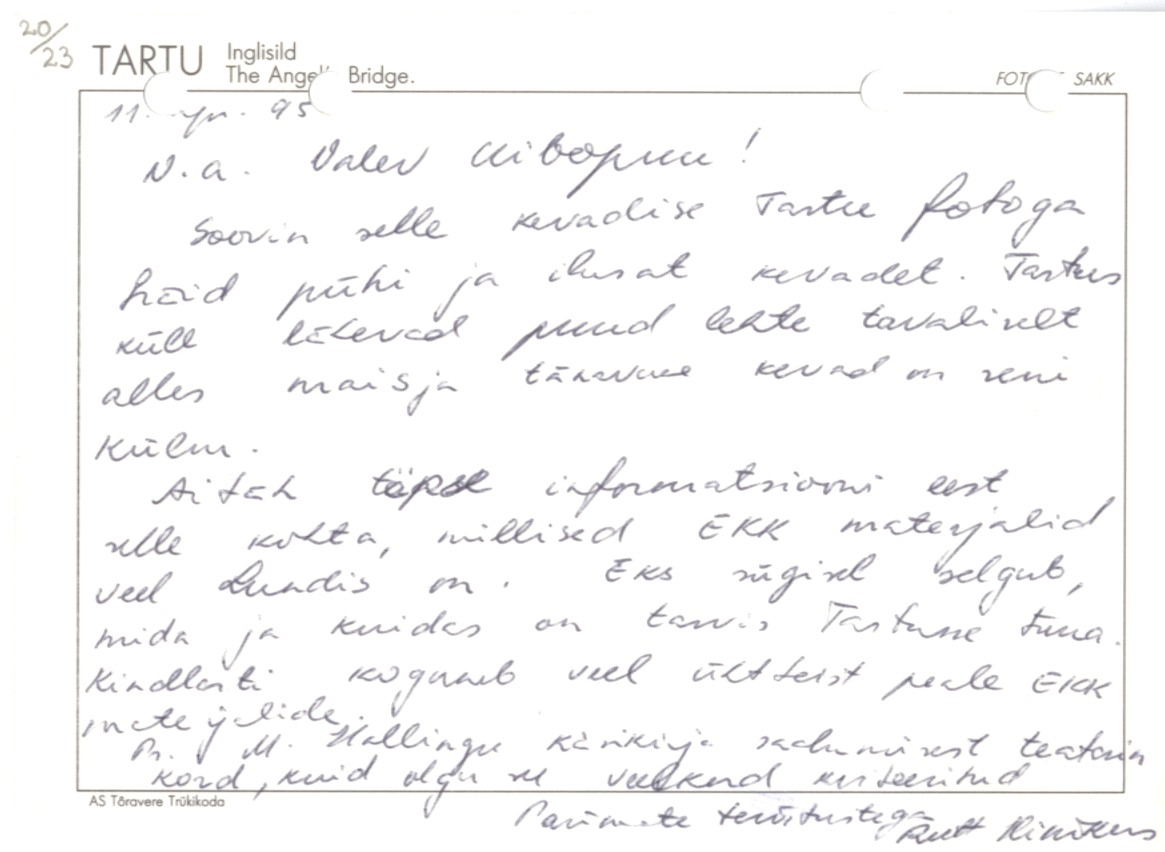 20/23
TARTU Inglisild
The Angel' Bridge.
FOTO SAKK
11. apr. 95
N.a. Valev Uibopuu!
Soovin selle kevadise Tartu fotoga
häid pühi ja ilusat kevadet. Tartus
küll lähevad puud lehte tavaliselt
alles mais ja tänavune kevad on seni
külm.
Aitäh täpse informatsiooni eest
selle kohta, millised EKK materjalid
veel Lundis on. Eks sügisel selgub,
mida ja kuidas on tarvis Tartusse tuua.
Kindlasti koguneb veel ühtteist peale EKK
materjalide.
Pr. M. Hallingu käsikirja saabumisest teatasin
kord, kuid olgu see veelkord
Parimate tervitustega Rutt Hinrikus
AS Tõravere Trükikoda